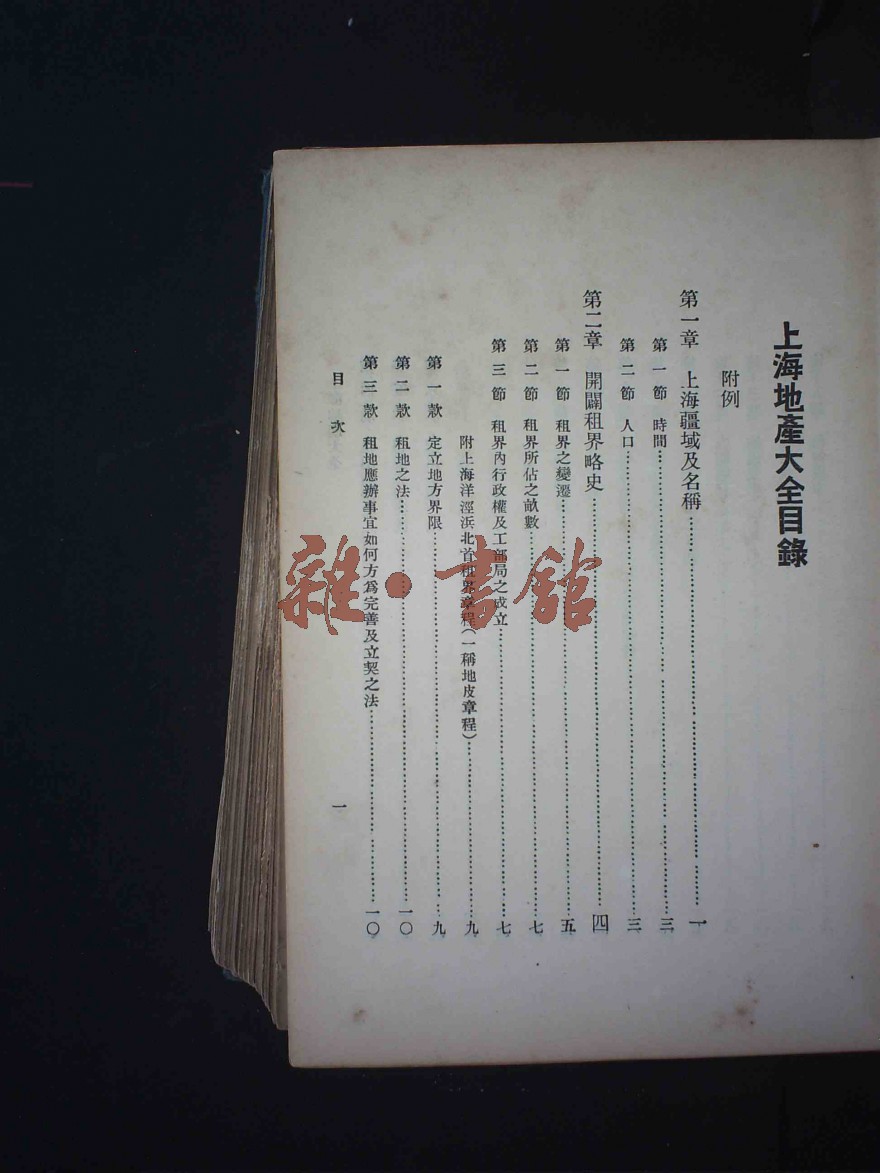 上海地產大全目錄
附例
第一章 上海疆域及名稱……一
第一節 時間……三
第二節 人口……三
第二章 開闢租界略史……四
第一節 租界之變遷……五
第二節 租界所佔之畝數……七
第三節 租界內行政權及工部局之成立……七
附上海洋涇浜北首租界章程(一稱地皮章程)……九
第一款 定立地方界限……九
第二款 租地之法……一〇
第三款 租地應辦事宜如何方為完善及立契之法……一〇
目次
一
雜·書館